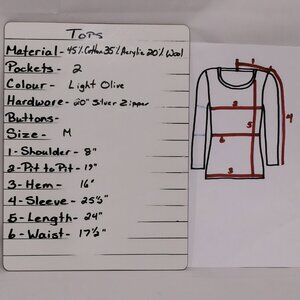 Tops
Material - 45% Cotton 35% Acrylic 20% Wool
Pockets - 2
Colour - Light Olive
Hardware - 20" Silver Zipper
Buttons-
Size - M
1 - Shoulder - 8"
2 - Pit to Pit - 19"
3 - Hem - 16"
4 - Sleeve - 25½"
5 - Length - 24"
6 - Waist - 17½"
1
2
6
5
3
4